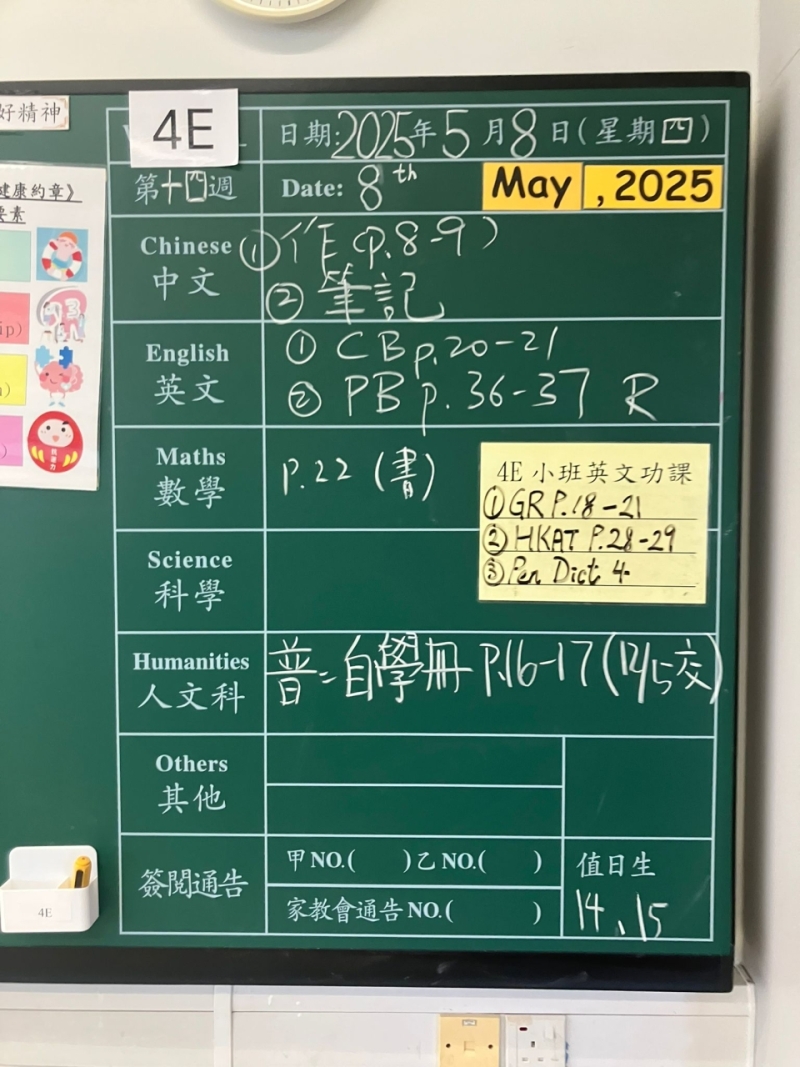 好精神
4E
日期:2025年5月8日(星期四)
第十四週
Date: 8th May, 2025
健康約章》
要素
ip)
Chinese
中文
①作(P.8-9)
②筆記
English
英文
① CB p.20-21
② PB p.36-37 R
Maths
數學
P.22 (書)
4E 小班英文功課
①GR P.18-21
②HKAT P.28-29
③Pen Dict 4.
Science
科學
Humanities
人文科
普=自學冊 P.16-17(12/5交)
Others
其他
簽閱通告
甲NO.( )乙NO.( )
家教會通告NO.( )
值日生
14、15
4E